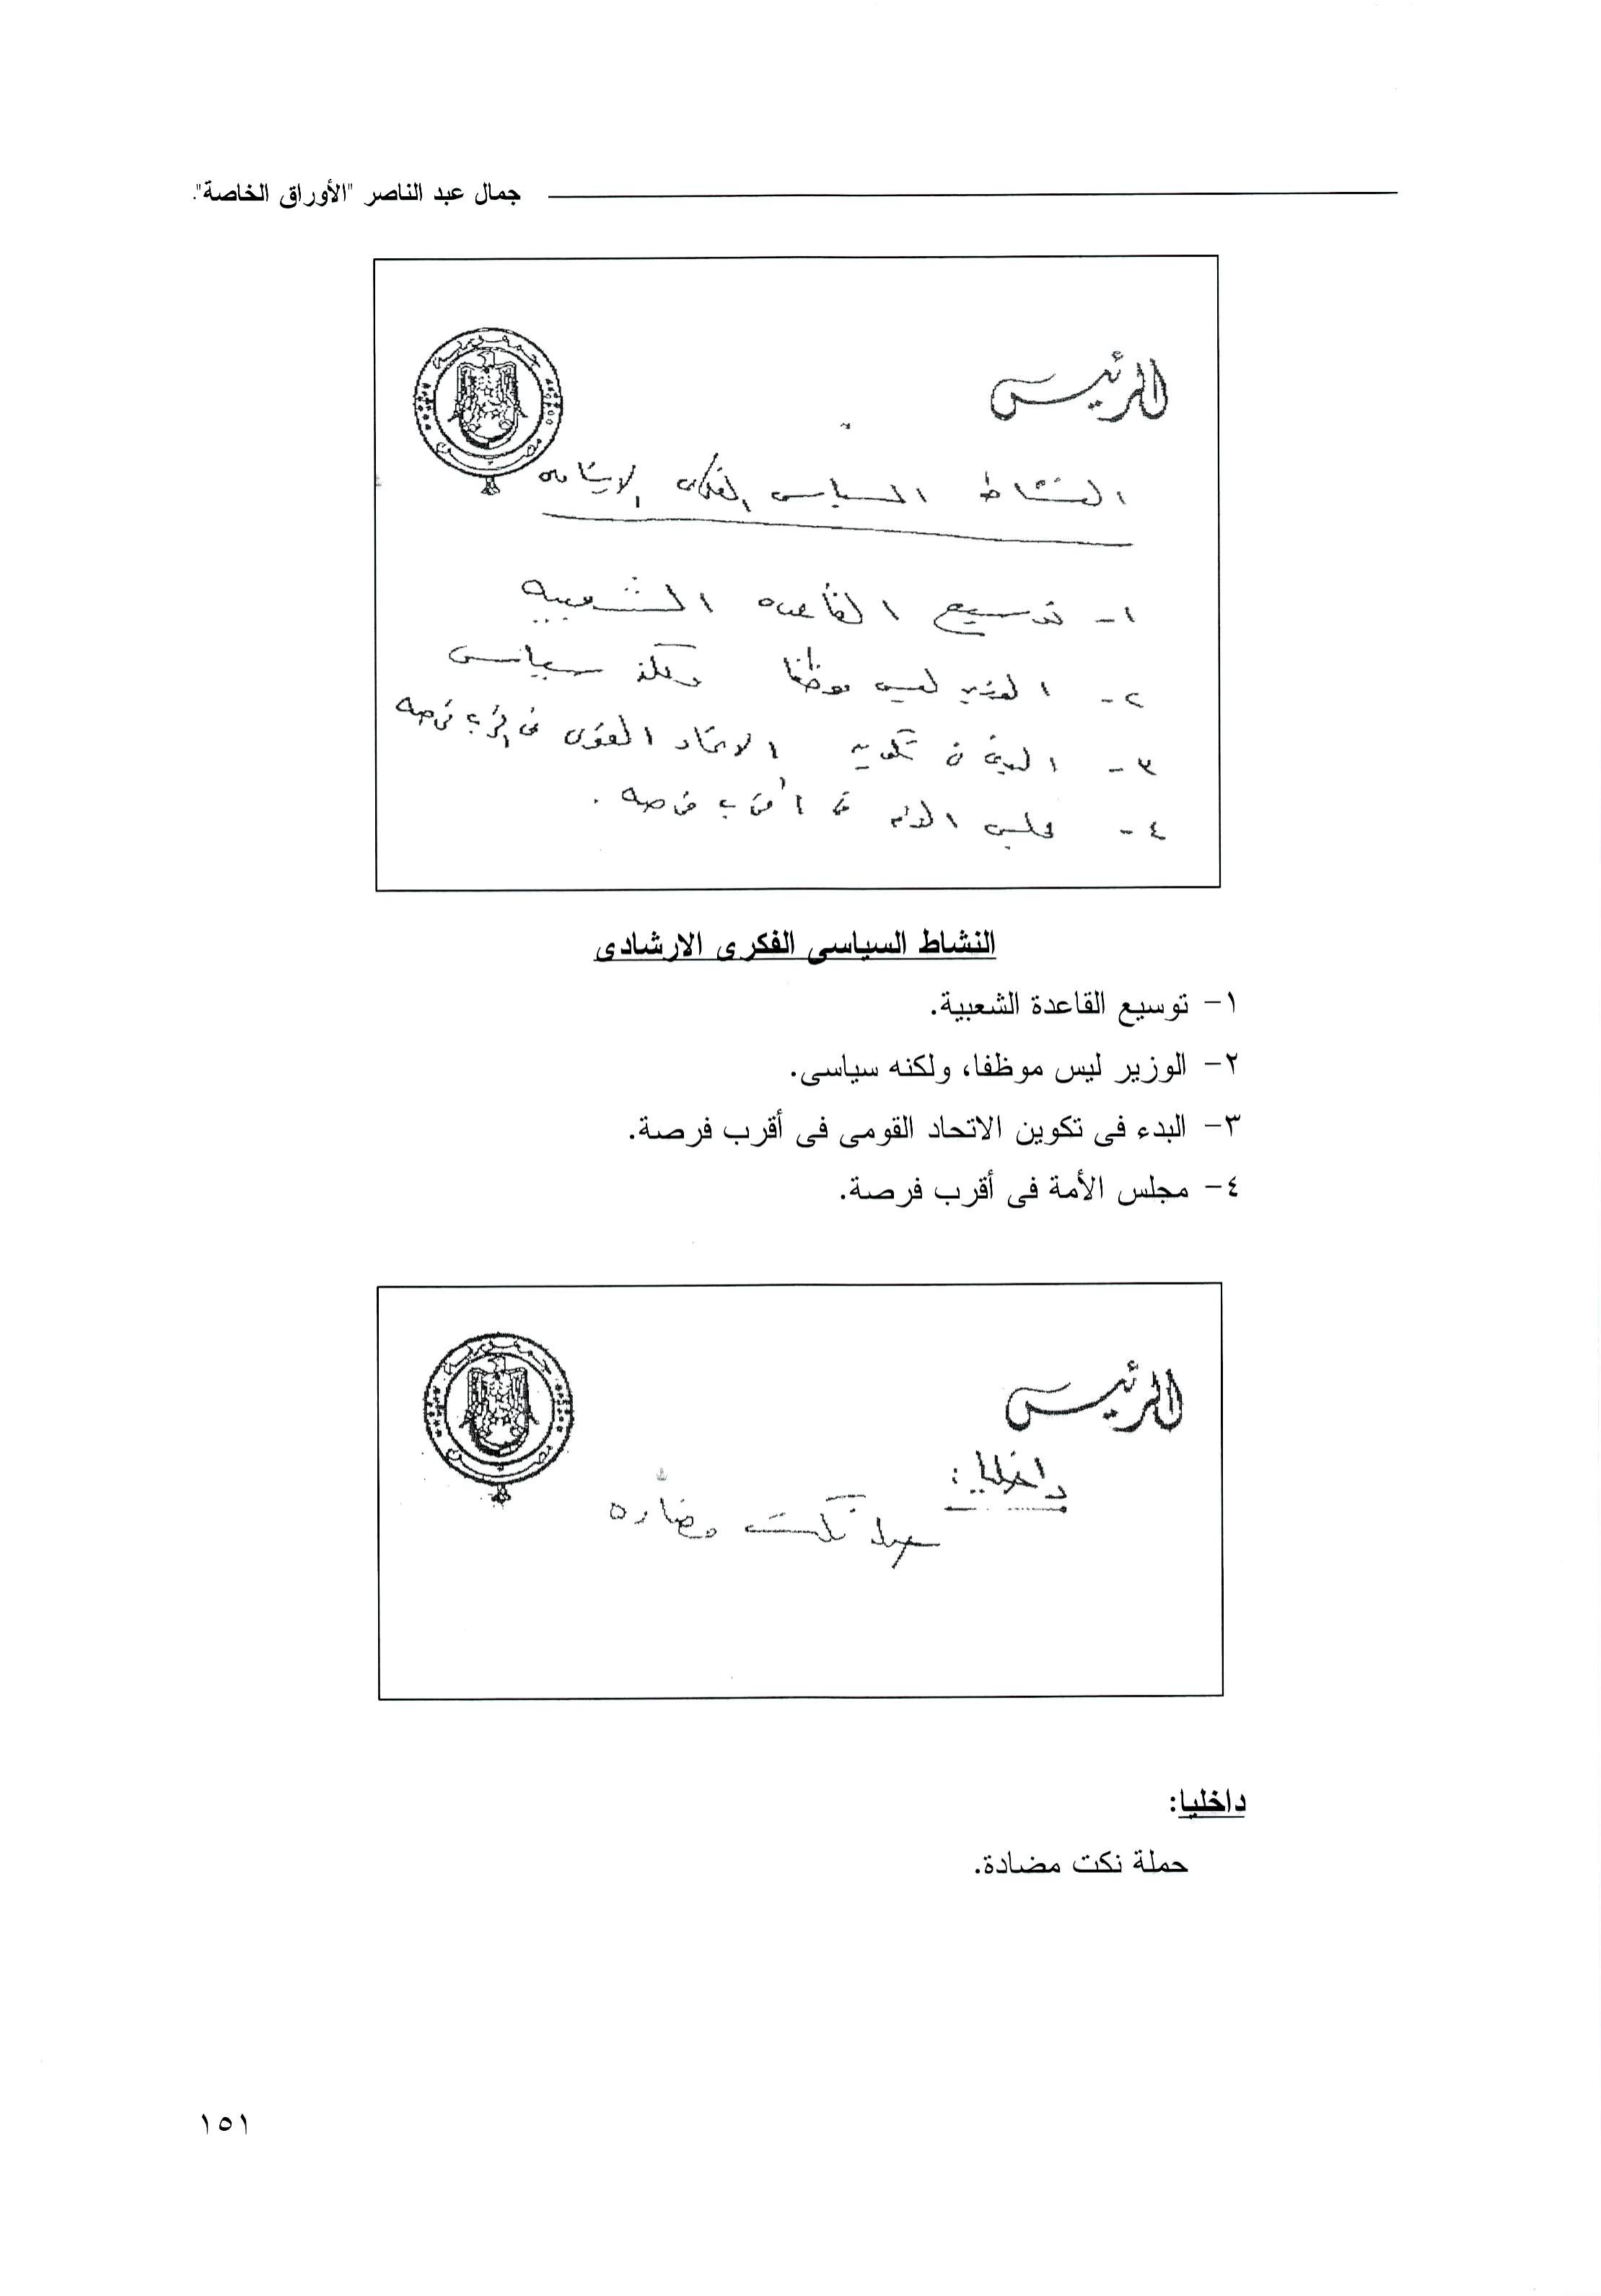 جمال عبد الناصر "الأوراق الخاصة".
الرئيس
النشاط السياسى الفكرى الارشادى
١- توسيع القاعده الشعبيه
٢- الوزير ليس موظفا ولكنه سياسى
٣- البدء فى تكوين الاتحاد القومى فى اقرب فرصه
٤- مجلس الامه فى أقرب فرصه .
النشاط السياسى الفكرى الارشادى
١- توسيع القاعدة الشعبية.
٢- الوزير ليس موظفا، ولكنه سياسى.
٣- البدء فى تكوين الاتحاد القومى فى أقرب فرصة.
٤- مجلس الأمة فى أقرب فرصة.
الرئيس
داخليا:
حملة نكت مضاده
داخليا:
حملة نكت مضادة.
١٥١